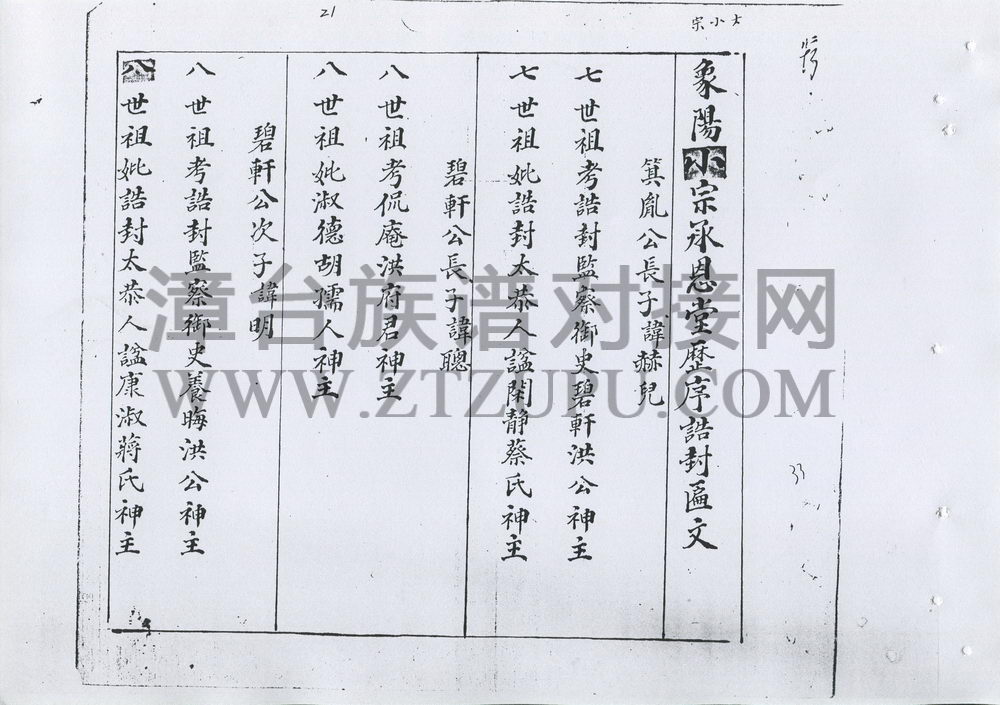 象陽小宗承恩堂歷序誥封匾文
箕胤公長子諱赫兒
七世祖考誥封監察御史碧軒洪公神主
七世祖妣誥封太恭人謚閑靜蔡氏神主
碧軒公長子諱聰
八世祖考侃庵洪府君神主
八世祖妣淑德胡孺人神主
碧軒公次子諱明
八世祖考誥封監察御史養晦洪公神主
八世祖妣誥封太恭人謚康淑蔣氏神主
21
33
漳台族谱对接网
WWW.ZTZUPU.COM